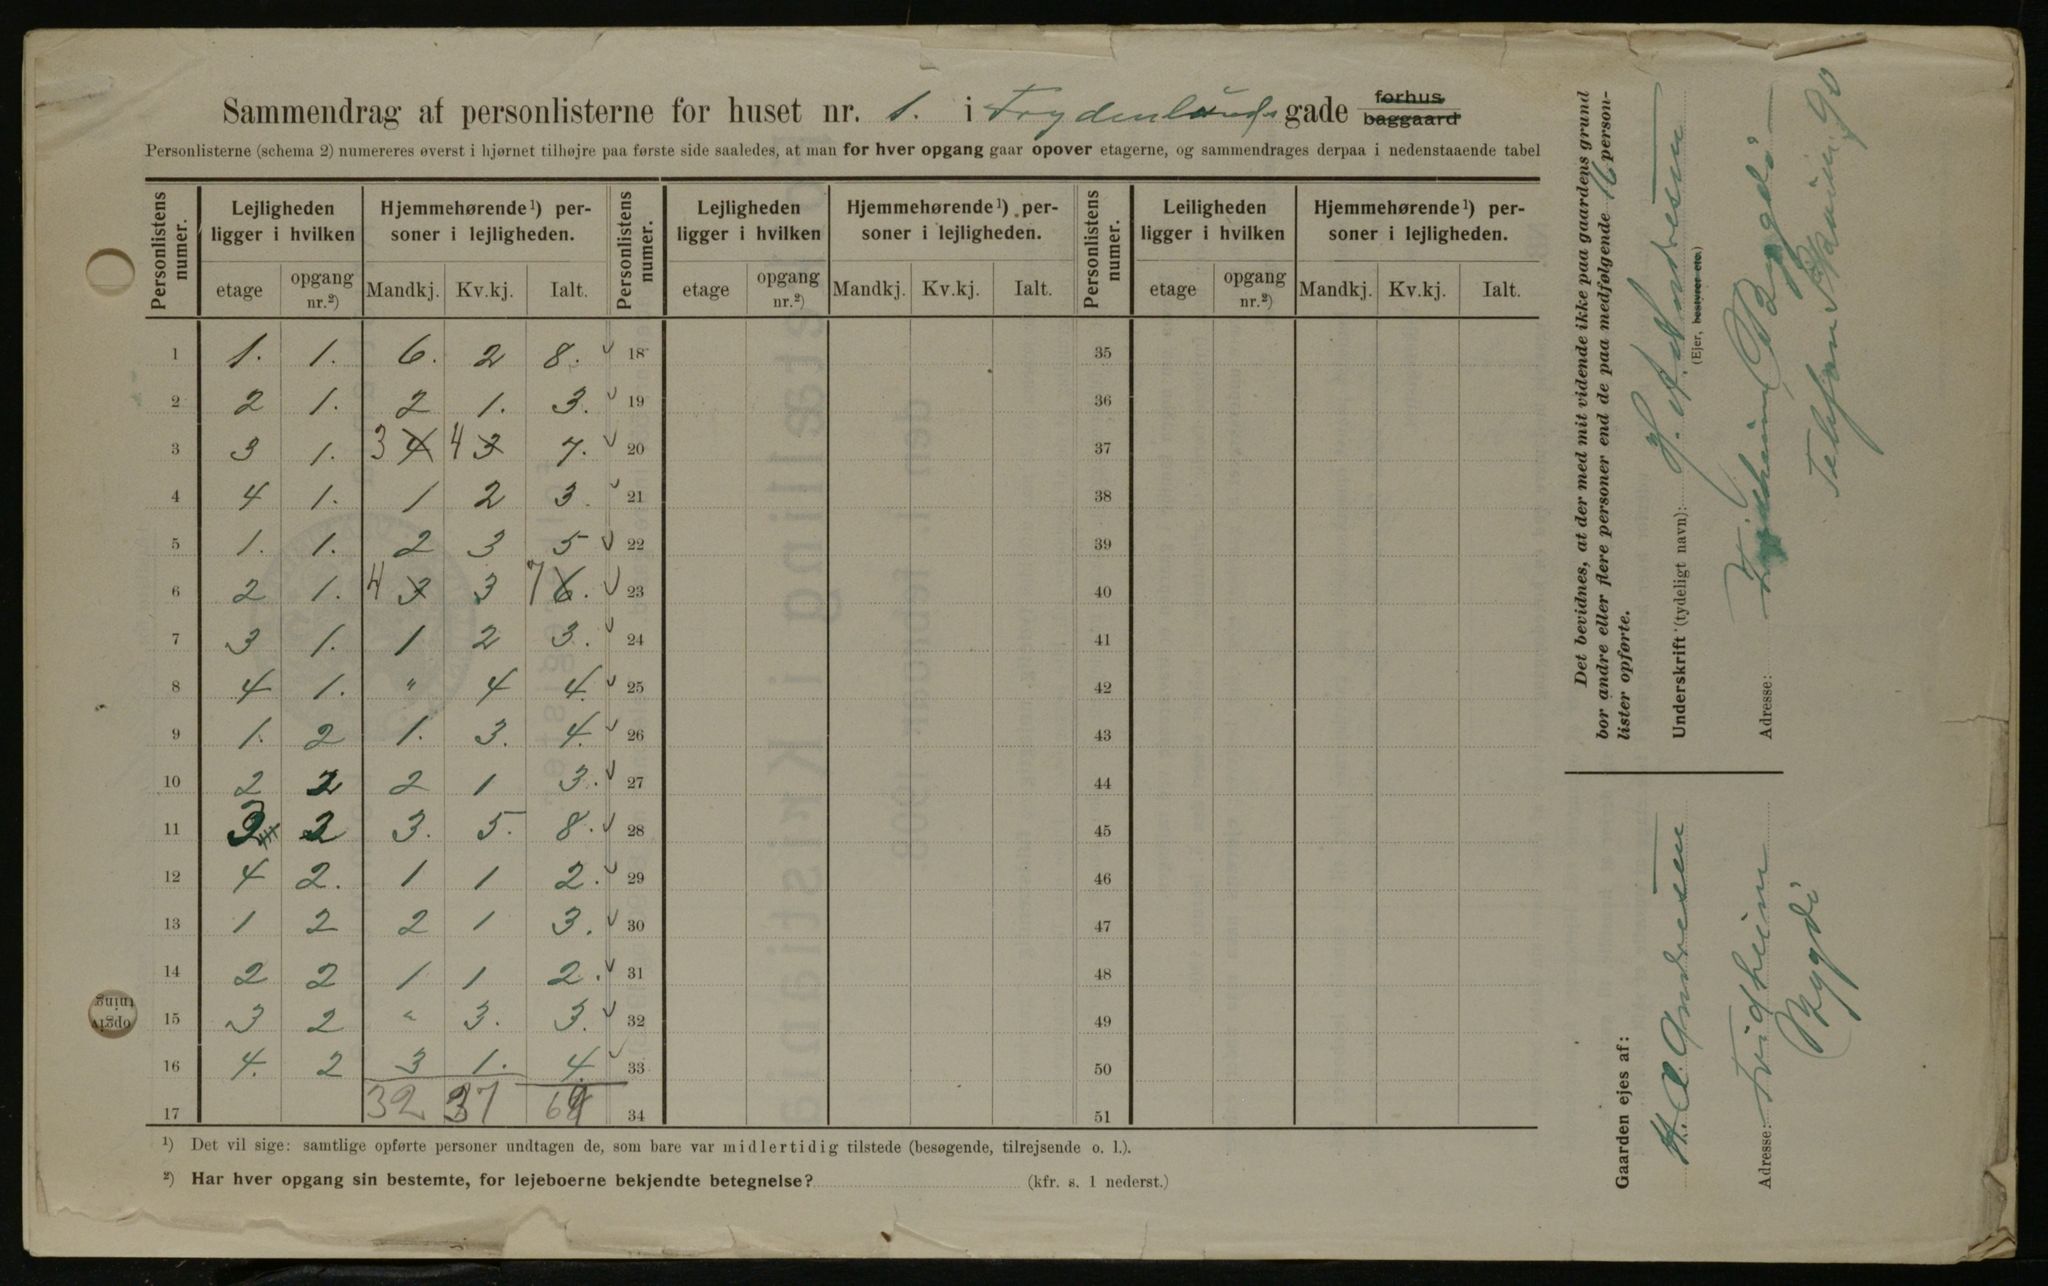 Sammendrag af personlisterne for huset nr. 1. i Frydenlunds gade forhus baggaard
Personlisterne (schema 2) numereres øverst i hjørnet tilhøjre paa første side saaledes, at man for hver opgang gaar opover etagerne, og sammendrages derpaa i nedenstaaende tabel
Personlistens numer. Lejligheden ligger i hvilken Hjemmehørende¹) personer i lejligheden. Personlistens numer. Lejligheden ligger i hvilken Hjemmehørende¹) personer i lejligheden. Personlistens numer. Leiligheden ligger i hvilken Hjemmehørende¹) personer i lejligheden.
etage opgang nr.²) Mandkj. Kv.kj. Ialt. etage opgang nr.²) Mandkj. Kv.kj. Ialt. etage opgang nr.²) Mandkj. Kv.kj. Ialt.
1 1. 1. 6. 2 8. 18 35
2 2 1. 2 1. 3. 19 36
3 3 1. 3 4 4 3 7. 20 37
4 4 1. 1 2 3. 21 38
5 1. 1. 2 3 5 22 39
6 2 1. 4 3 3 7 6. 23 40
7 3 1. 1 2 3. 24 41
8 4 1. " 4 4. 25 42
9 1. 2 1. 3. 4. 26 43
10 2 2 2 1 3. 27 44
11 3 2 3. 5. 8. 28 45
12 4 2. 1 1 2. 29 46
13 1 2 2 1 3. 30 47
14 2 2 1 1 2. 31 48
15 3 2 " 3. 3. 32 49
16 4. 2 3 1. 4. 33 50
17 32 37 69 34 51
¹) Det vil sige: samtlige opførte personer undtagen de, som bare var midlertidig tilstede (besøgende, tilrejsende o. l.).
²) Har hver opgang sin bestemte, for lejeboerne bekjendte betegnelse? (kfr. s. 1 nederst.)
Det bevidnes, at der med mit vidende ikke paa gaardens grund
bor andre eller flere personer end de paa medfølgende 16 person-
lister opførte.
Underskrift (tydeligt navn): H. A. Andresen
(Ejer, bestyrer etc.)
Adresse: Bygdø
Telefon
90
Gaarden ejes af:
H. A. Andresen
Adresse: Fridheim
Bygdø
opgiv
ning